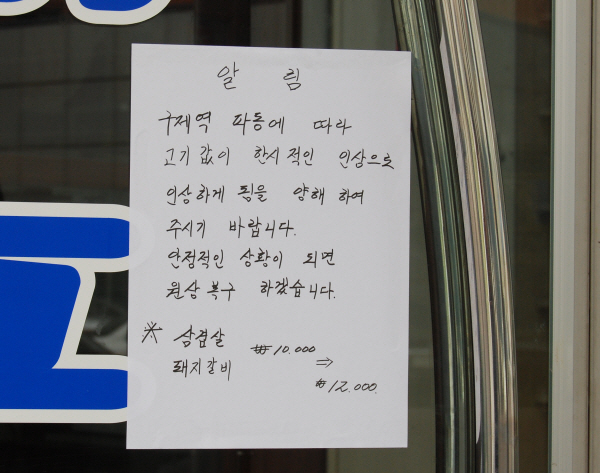 알 림
구제역 파동에 따라
고기 값이 한시적인 인상으로
인상하게 됨을 양해 하여
주시기 바랍니다.
안정적인 상황이 되면
원상 복구 하겠습니다.
※ 삼겹살 ₩10.000
돼지갈비 ⇒
₩12.000.